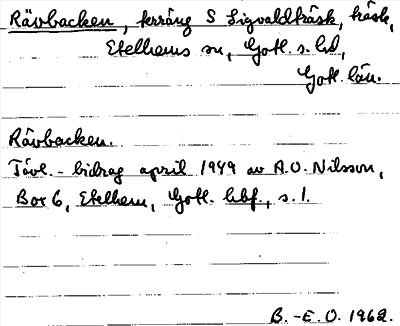 Rävbacken, terräng S Sigvaldträsk, träsk,
Etelhems sn, Gotl. s. hd,
Gotl. län.
Rävbacken.
Tävl.-bidrag april 1949 av A.O. Nilsson,
Box 6, Etelhem, Gotl. hbf., s. 1.
B.-E. O. 1962.